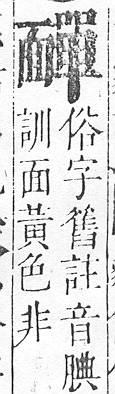 俗字舊註音腆
訓面黃色非